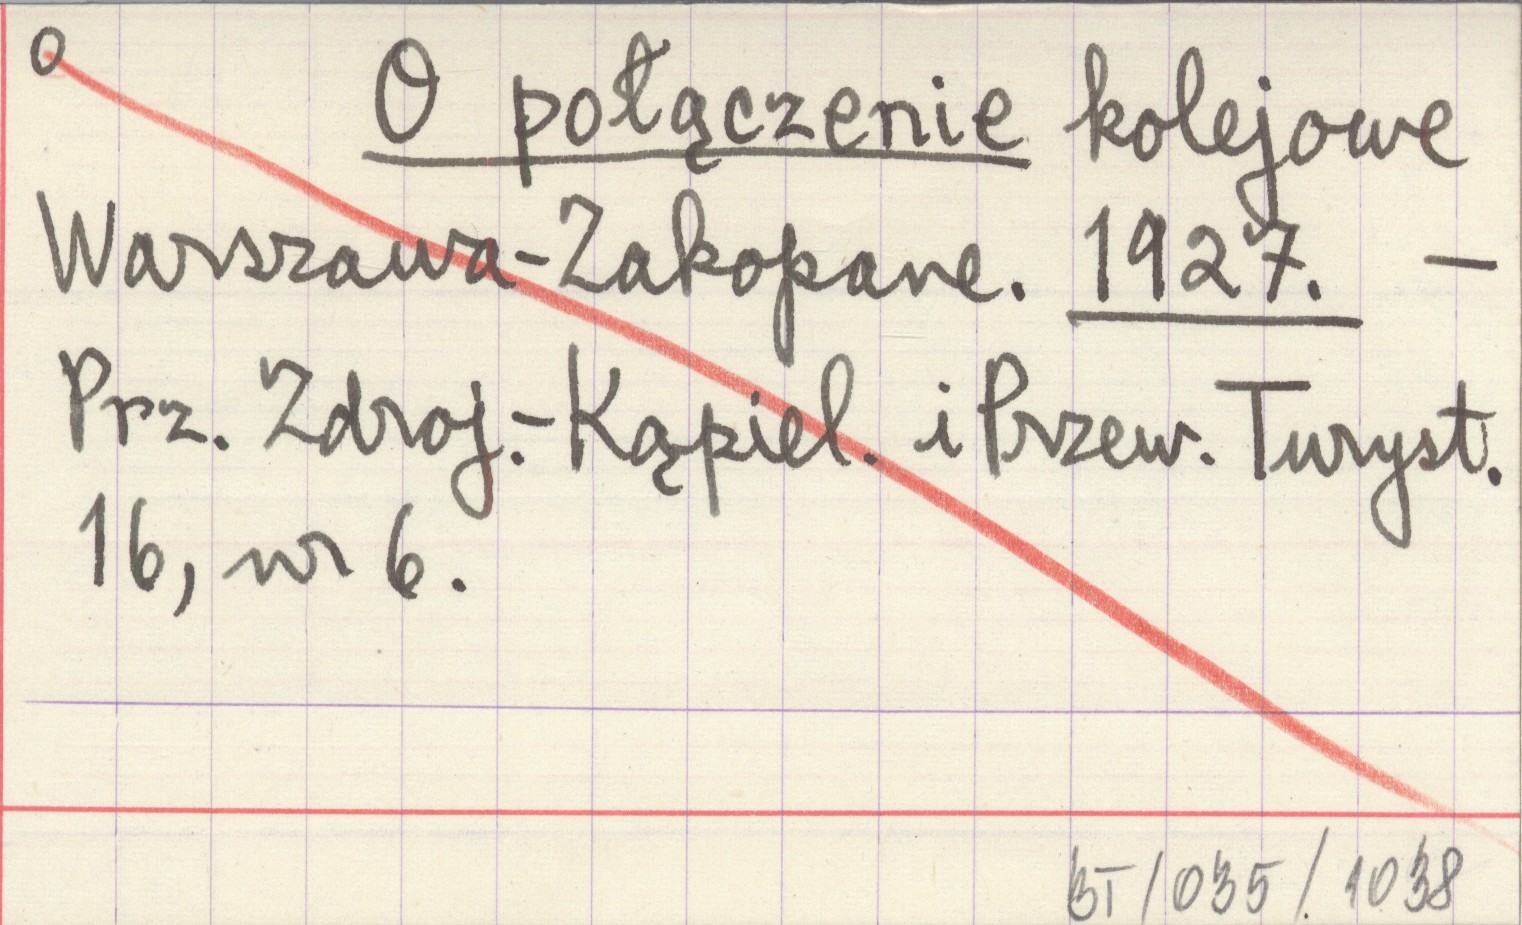 O
O połączenie kolejowe
Warszawa-Zakopane. 1927. —
Prz. Zdroj.-Kąpiel. i Przew. Turyst.
16, nr 6.
BT/035/1038